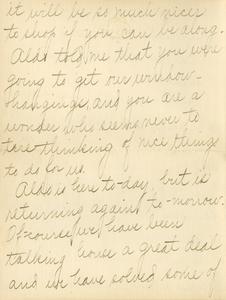 it will be so much nicer
to shop if you can be along.
Aldo told me that you were
going to get our window-
hangings, and you are a
wonder who seems never to
tire thinking of nice things
to do for us.
Aldo is here to-day, but is
returning again to-morrow.
Of course we have been
talking house a great deal
and we have solved some of